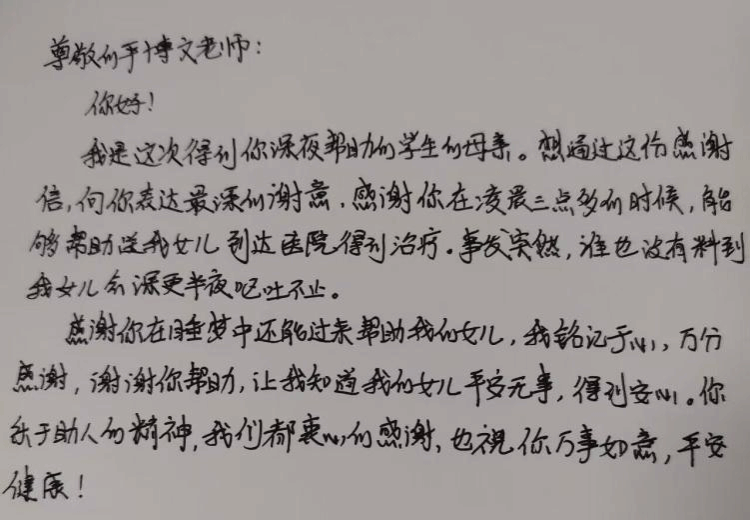 尊敬的于博文老师:
你好!
我是这次得到你深夜帮助的学生的母亲。想通过这份感谢
信,向你表达最深的谢意.感谢你在凌晨三点多的时候,能
够帮助送我女儿到达医院得到治疗.事发突然,谁也没有料到
我女儿会深更半夜呕吐不止。
感谢你在睡梦中还能过来帮助我的女儿,我铭记于心,万分
感谢,谢谢你帮助,让我知道我的女儿平安无事,得到安心.你
乐于助人的精神,我们都衷心的感谢,也祝你万事如意,平安
健康!